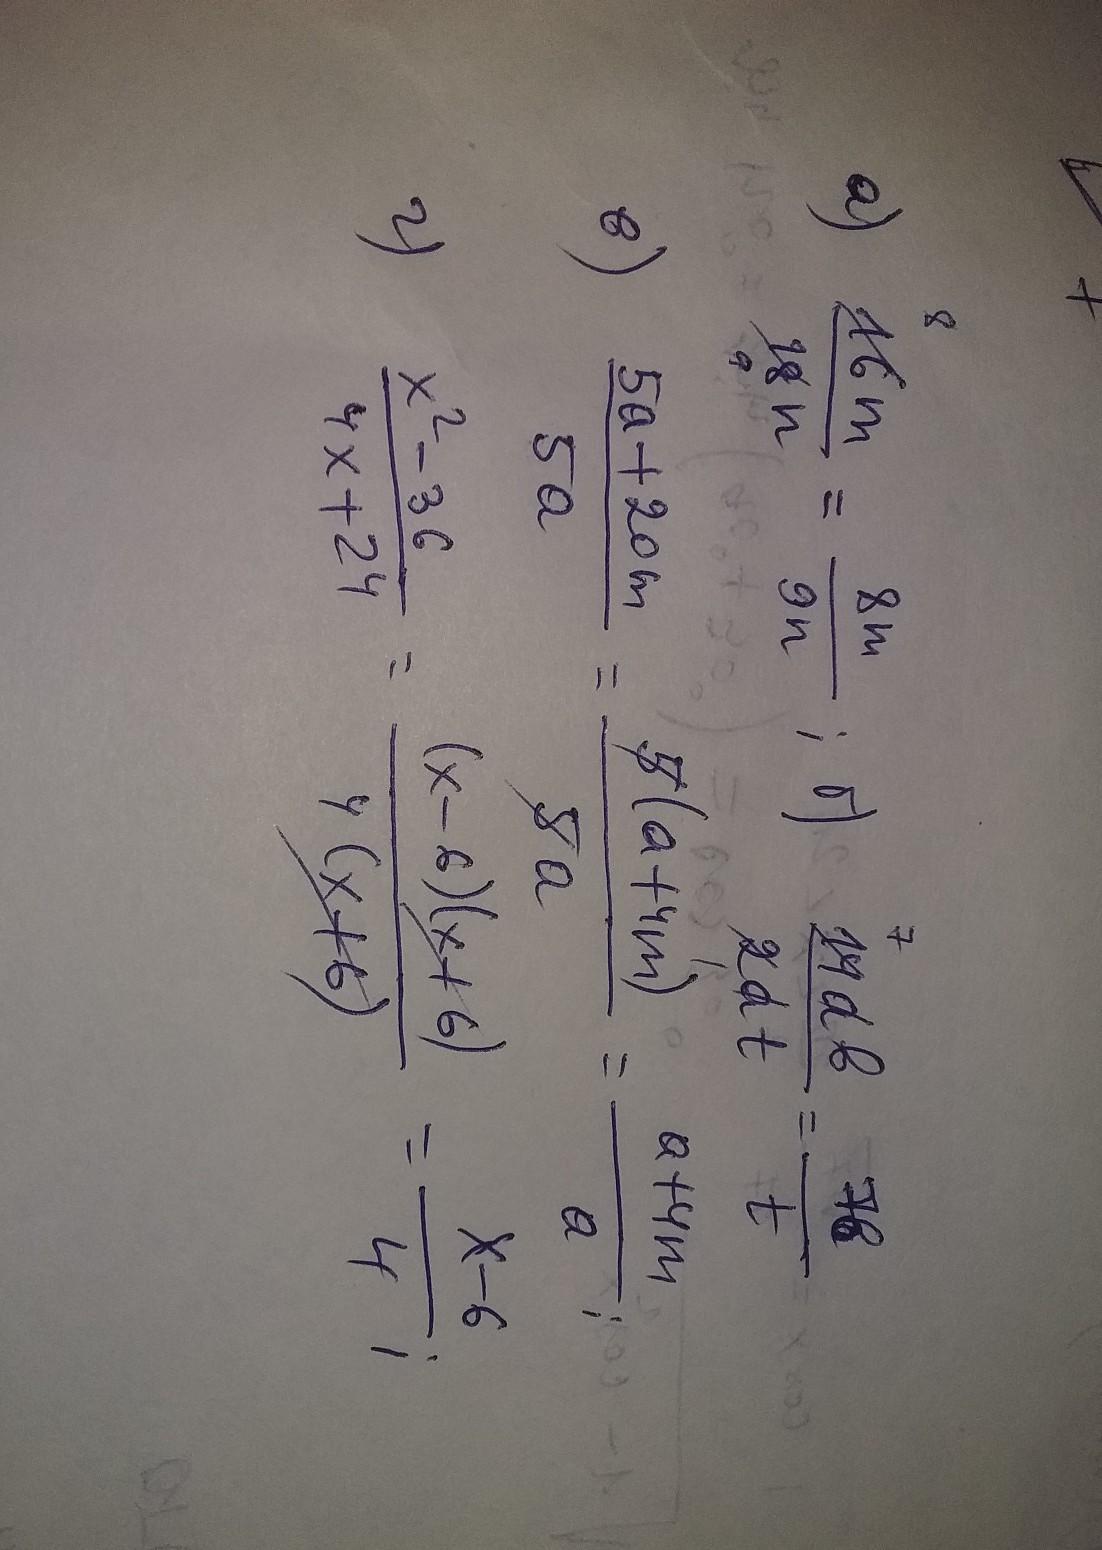 а) 16m/18n = 8m/9n ; б) 14db/2dt = 7b/t
в) 5a+20m/5a = 5(a+4m)/5a = a+4m/a ;
г) x²-36/4x+24 = (x-6)(x+6)/4(x+6) = x-6/4 ;